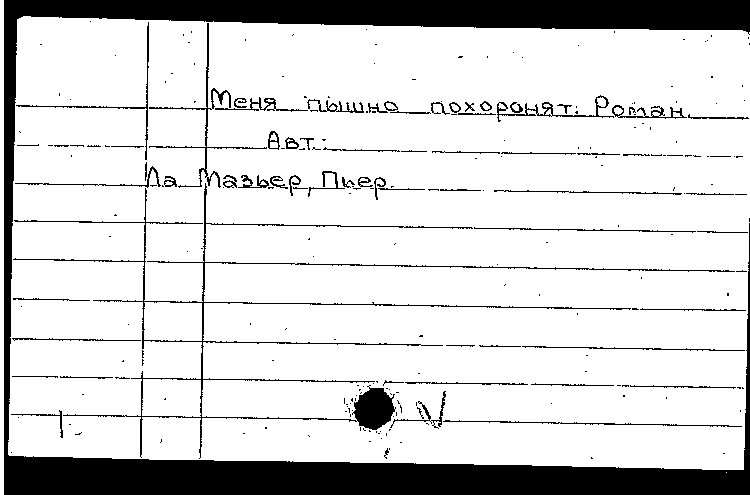 Меня пышно похоронят. Роман.
Авт.:
Ла Мазьер, Пьер.